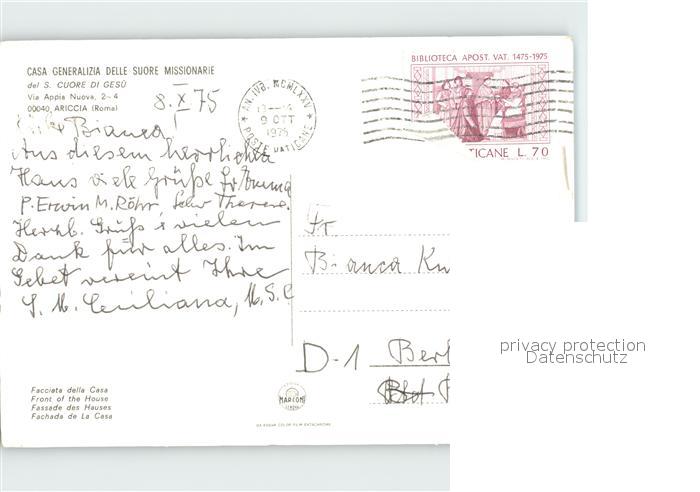 CASA GENERALIZIA DELLE SUORE MISSIONARIE
del S. CUORE DI GESÙ
Via Appia Nuova, 2-4
00040 ARICCIA (Roma)
8. X 75
Bianca!
Aus diesem herrlichen
Haus viele Grüße
P. Erwin M. Röhr, Schw. Therese.
Herzl. Grüß + vielen
Dank für alles. Im
Gebet vereint Ihre
S. M. Ceciliana, M.S.C
BIBLIOTECA APOST. VAT. 1475-1975
TICANE L. 70
AN. IVB. MCMLXXV
9 OTT
1975
POSTE VATICANE
Fr.
Bianca Kn
D-1 Berl
privacy protection
Datenschutz
Facciata della Casa
Front of the House
Fassade des Hauses
Fachada de La Casa
MARCONI
GENOVA
DA KODAK COLOR FILM EKTACHROME